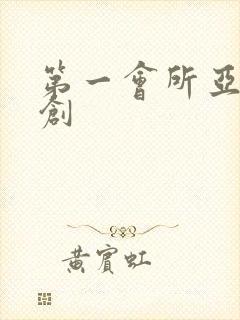 第一會所亞
創
黃賓虹